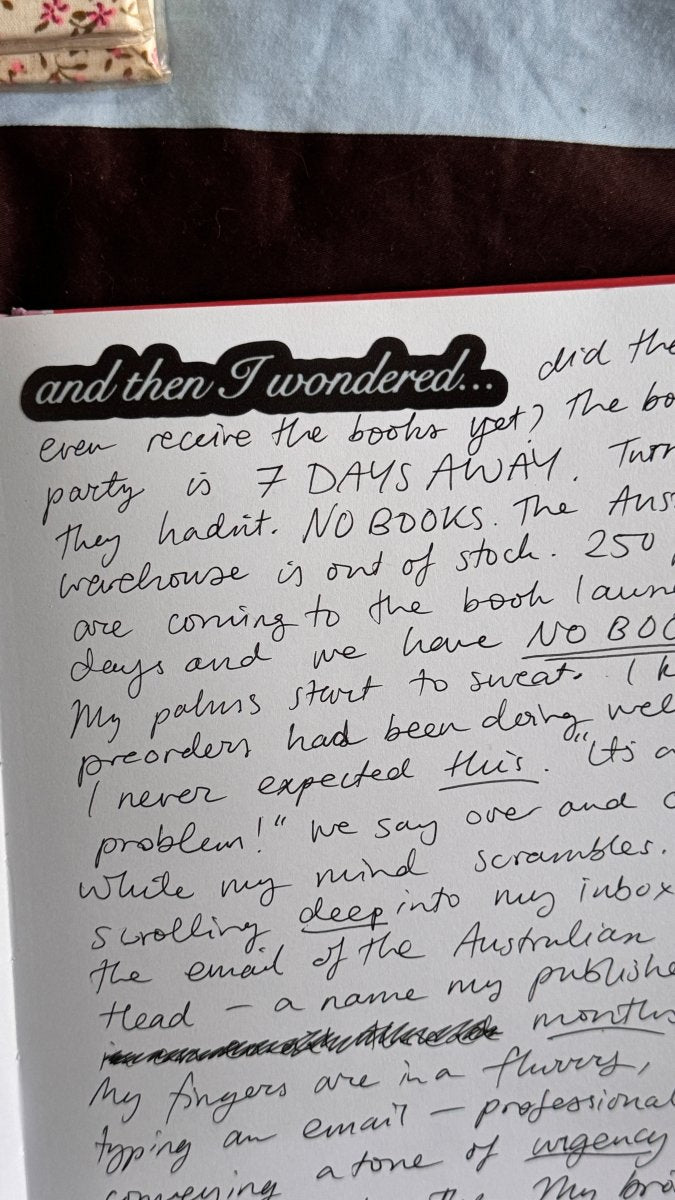 and then I wondered... did the
even receive the books yet? The bo
party is 7 DAYS AWAY. Turn
they hadn't. NO BOOKS. The Aus
warehouse is out of stock. 250
are coming to the book laun
days and we have NO BOO
My palms start to sweat. I k
preorders had been doing wel
I never expected this. "It's a
problem!" we say over and o
while my mind scrambles.
scrolling deep into my inbox
the email of the Australian
Head – a name my publishe
months
My fingers are in a flurry,
typing an email – professional
conveying a tone of urgency
My bro